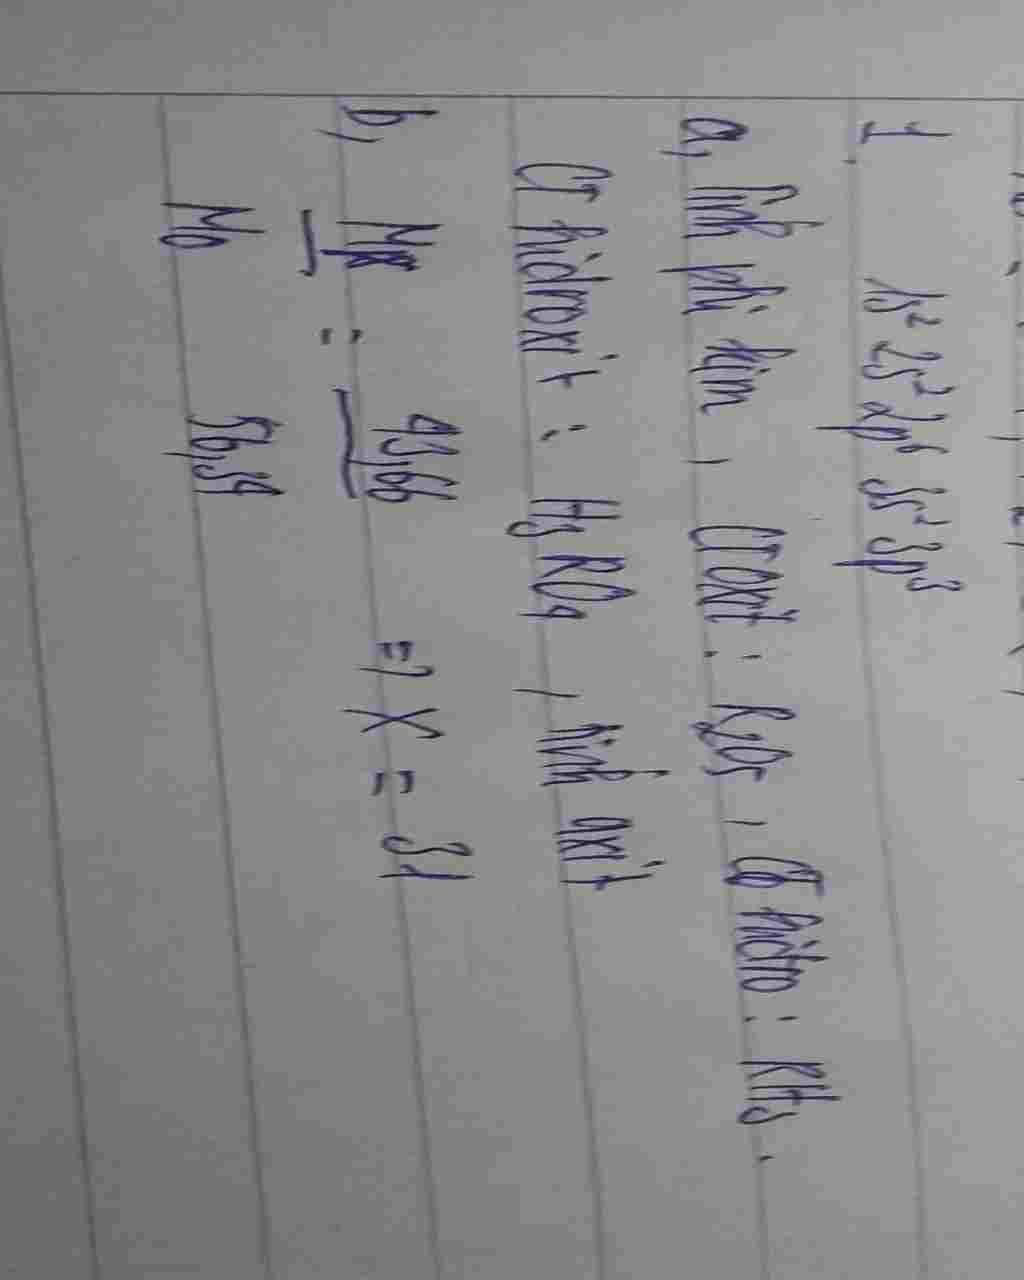 1. 1s² 2s² 2p⁶ 3s² 3p³
a, tính phi kim, CT oxit: R2O5, CT hidro: RH3.
CT hidroxit: H3RO4, tính axit
b, MR = 43,66 => X = 31
MO 56,34